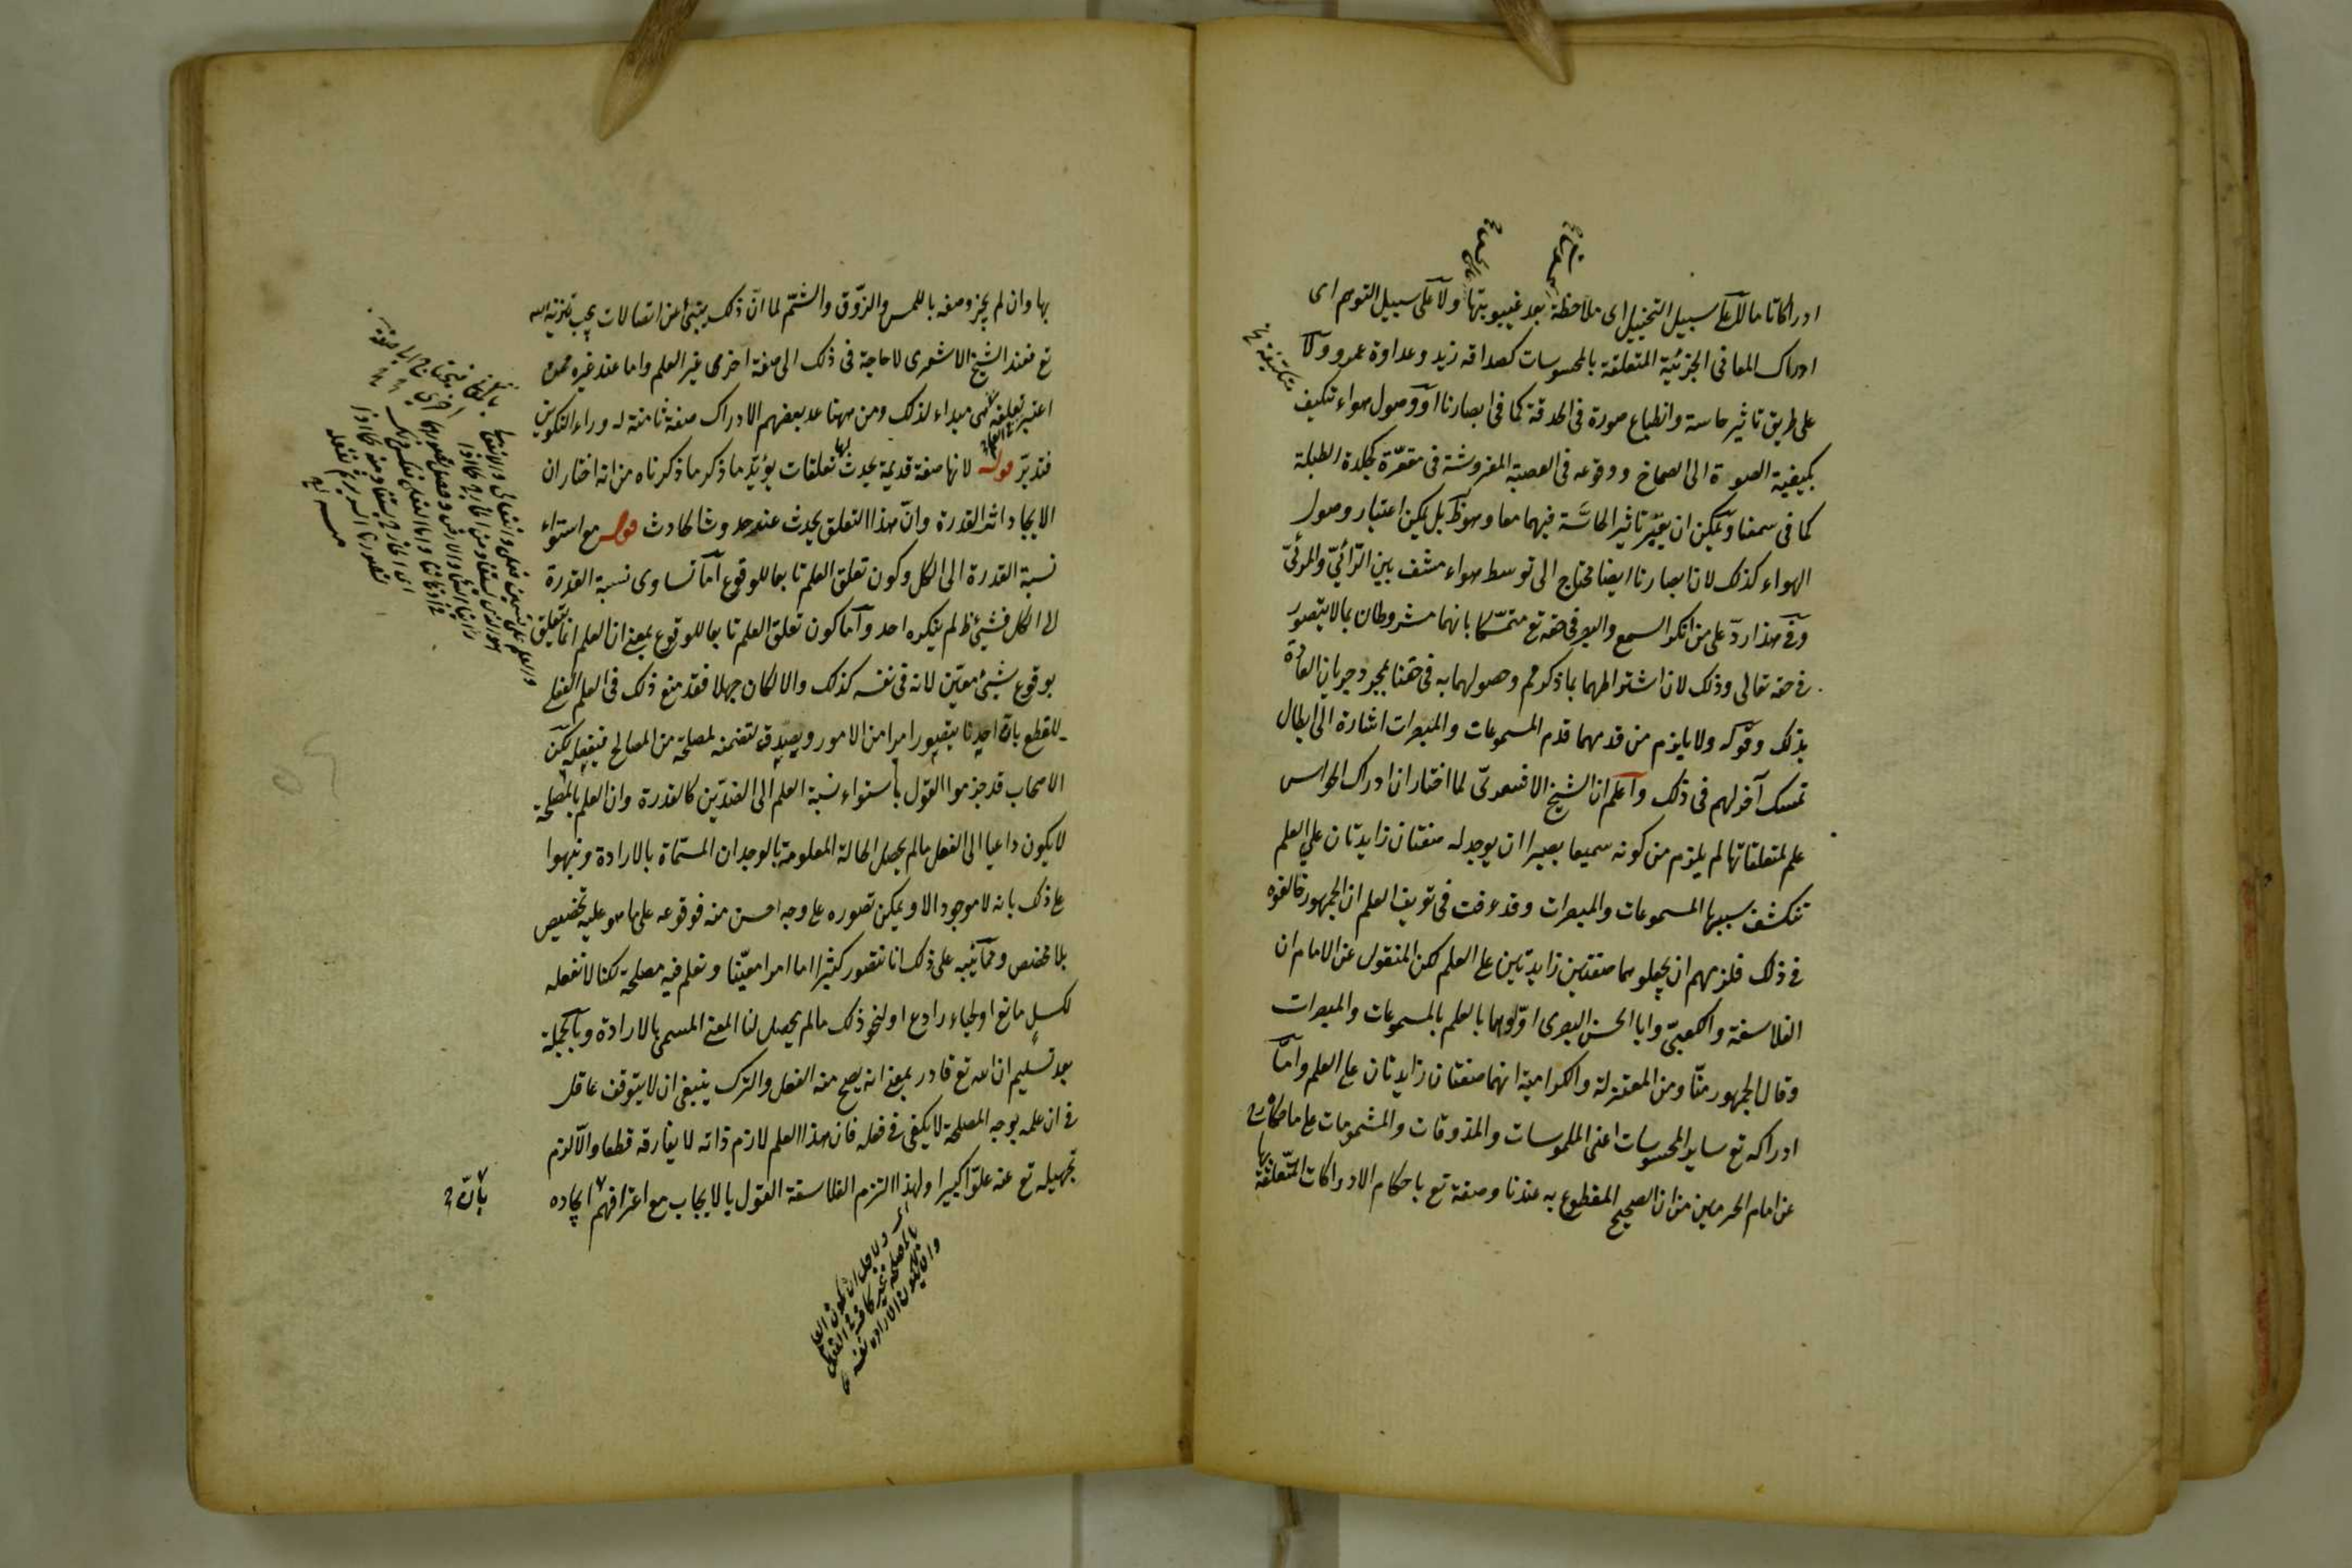 ادراكا تاما لا على سبيل التخييل اى ملاحظة بعد غيبوبتها ولا على سبيل التوهم اى
ادراك المعانى الجزئية المتعلقة بالمحسوسات كصداقة زيد وعداوة عمرو ولا
على طريق تاثير حاسة وانطباع صورة فى الحدقة كما فى ابصارنا او وصول هواء تكيف
بكيفية الصوة الى الصماخ ووقوعه فى العصبة المفروشة فى مقعره كجلدة الطبلة
كما فى سمعنا ويمكن ان يعتبر تاثير الحاسة فيهما معا وهو ظ بل يمكن اعتبار وصول
الهواء كذلك لان ابصارنا ايضا محتاج الى توسط هواء مشف بين الرائى والمرئى
وفى هذا رد على من انكر السمع والبصر فى حقه تع متمسكا بانهما مشروطان بما لا يتصور
فى حقه تعالى وذلك لان اشتراطهما بما ذكر مم وحصولهما به فى حقنا بمجرد جريان العادة
بذلك وقوله ولا يلزم من قدمهما قدم المسموعات والمبصرات اشارة الى ابطال
تمسك آخر لهم فى ذلك واعلم ان الشيخ الاشعرى لما اختار ان ادراك الحواس
علم لمتعلقاتها لم يلزم من كونه سميعا بصيرا ان يوجد له صفتان زايدتان على العلم
تنكشف بسببها المسموعات والمبصرات وقد عرفت فى تعريف العلم ان الجمهور خالفوه
فى ذلك فلزمهم ان يجعلوهما صفتين زايدتين على العلم لكن المنقول عن الامام ان
الفلاسفة والكعبى وابا الحسن البصرى اولوهما بالعلم بالمسموعات والمبصرات
وقال الجمهور منا ومن المعتزلة والكرامية انهما صفتان زايدتان على العلم واما
ادراكه تع ساير المحسوسات اعنى الملموسات والمذوقات والمشمومات على ما حكاه
عن امام الحرمين من ان الصحيح المقطوع به عندنا وصفة تع باحكام الادراكات المتعلقة
بها
بها وان لم يجز وصفه باللمس والذوق والشم لما ان ذلك ينبئ عن اتصالات يجب تنزيه الله
تع فعند الشيخ الاشعرى لا حاجة فى ذلك الى صفة اخرى غير العلم واما عند غيره ممن
اعتبر تعلقه مبداء لذلك ومن ههنا عد بعضهم الادراك صفة ثامنة له وراء التكوين
فتدبر قوله لانها صفة قديمة يحدث لها تعلقات يؤيد ما ذكر ما ذكرناه من انه اختار ان
الايجاد اثر القدرة وان هذا التعلق يحدث عند حدوث الحادث قوله مع استواء
نسبة القدرة الى الكل وكون تعلق العلم تابعا للوقوع اما تساوى نسبة القدرة
الى الكل فشيئ ظ لم ينكره احد واما كون تعلق العلم تابعا للوقوع بمعنى ان العلم انما تعلق
بوقوع شيئ معين لانه فى نفسه كذلك والا لكان جهلا فقد منع ذلك فى العلم الفعلى
للقطع بان احدنا يتصور امرا من الامور ويصدق لتضمنه لمصلحة من المصالح فيفعله لكن
الاصحاب قد جزموا القول باستواء نسبة العلم الى الضدين كالقدرة وان العلم بالمصلحة
لا يكون داعيا الى الفعل مالم يحصل الحالة المعلومة بالوجدان المسماة بالارادة ونبهوا
على ذلك بانه لا موجود الا ويمكن تصوره على وجه احسن منه فوقوعه على ما هو عليه تخصيص
بلا مخصص ومما ينبه على ذلك انا نتصور كثيرا ما امرا معينا ونعلم فيه مصلحة لكنا لا نفعله
لكسل مانع او لحياء رادع او لنحو ذلك مالم يحصل لنا المعنى المسمى بالارادة وبالجملة
بعد تسليم ان الله تع قادر بمعنى انه يصح منه الفعل والترك ينبغى ان لا يتوقف عاقل
فى ان علمه بوجه المصلحة لا يكفى فى فعله فان هذا العلم لازم ذاته لا يفارقه قطعا والا لزم
تجهيله تع عنه علوا كبيرا ولهذا التزم الفلاسفة القول بالايجاب مع اعترافهم ايجاده
بان
ولاجل ان يكون العلم
بالمصلحة غير كاف فى الفعل